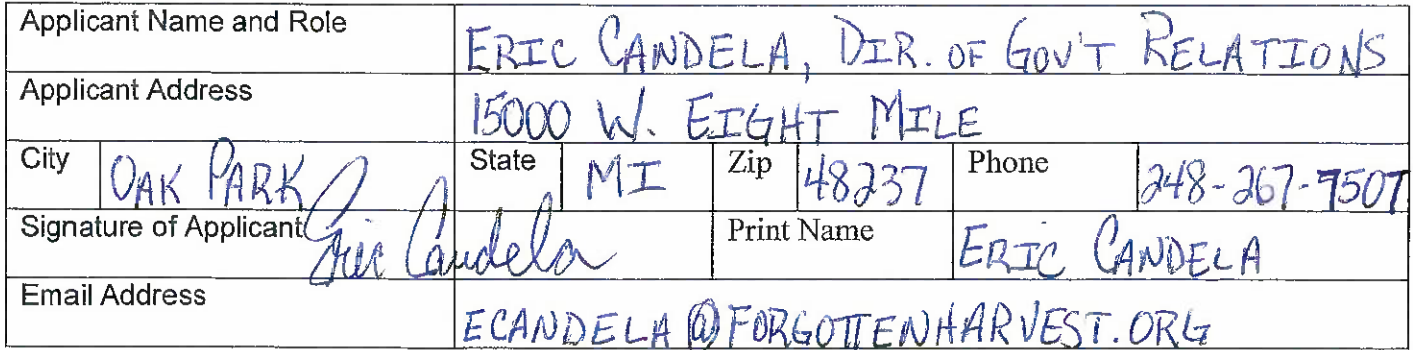 Applicant Name and Role ERIC CANDELA, DIR. OF GOV'T RELATIONS
Applicant Address 15000 W. EIGHT MILE
City OAK PARK State MI Zip 48237 Phone 248-267-7507
Signature of Applicant Eric Candela Print Name ERIC CANDELA
Email Address ECANDELA@FORGOTTENHARVEST.ORG